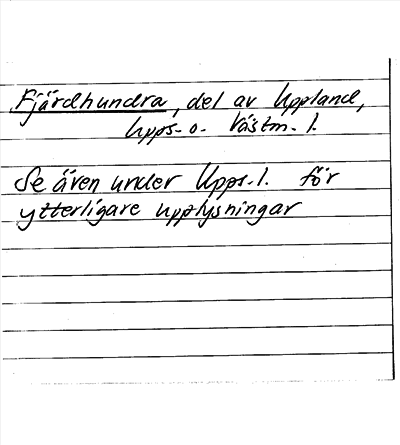 Fjärdhundra, del av Uppland,
Upps- o. Västm. l.
Se även under Upps. l. för
ytterligare upplysningar